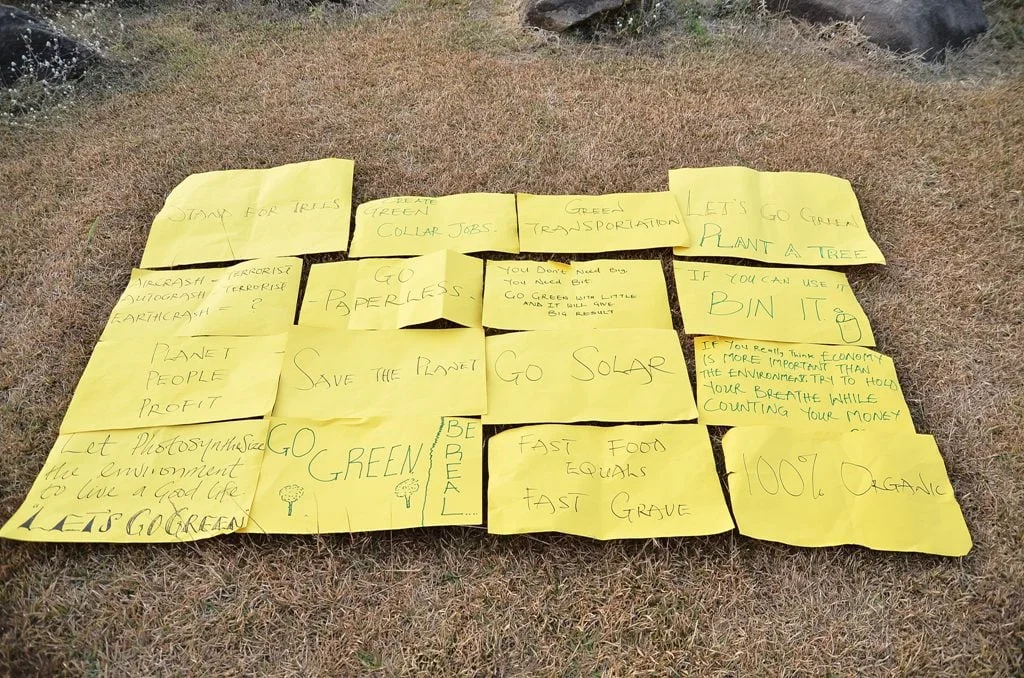 STAND FOR TREES
CREATE
GREEN
COLLAR JOBS.
GREEN
TRANSPORTATION
LET'S GO GREEN
PLANT A TREE
AIRCRASH - TERRORIST
AUTOCRASH - TERRORISE
EARTHCRASH - ?
GO
- PAPERLESS -
YOU DON'T NEED BIG
YOU NEED BIT
GO GREEN WITH LITTLE
AND IT WILL GIVE
BIG RESULT
IF YOU CAN USE IT
BIN IT
PLANET
PEOPLE
PROFIT
SAVE THE PLANET
GO SOLAR
IF YOU REALLY THINK ECONOMY
IS MORE IMPORTANT THAN
THE ENVIRONMENT. TRY TO HOLD
YOUR BREATHE WHILE
COUNTING YOUR MONEY
Let Photosynthesize
the environment
to live a Good life.
"LET'S GO GREEN
GO
GREEN
BE
REAL...
FAST FOOD
EQUALS
FAST GRAVE
100% ORGANIC